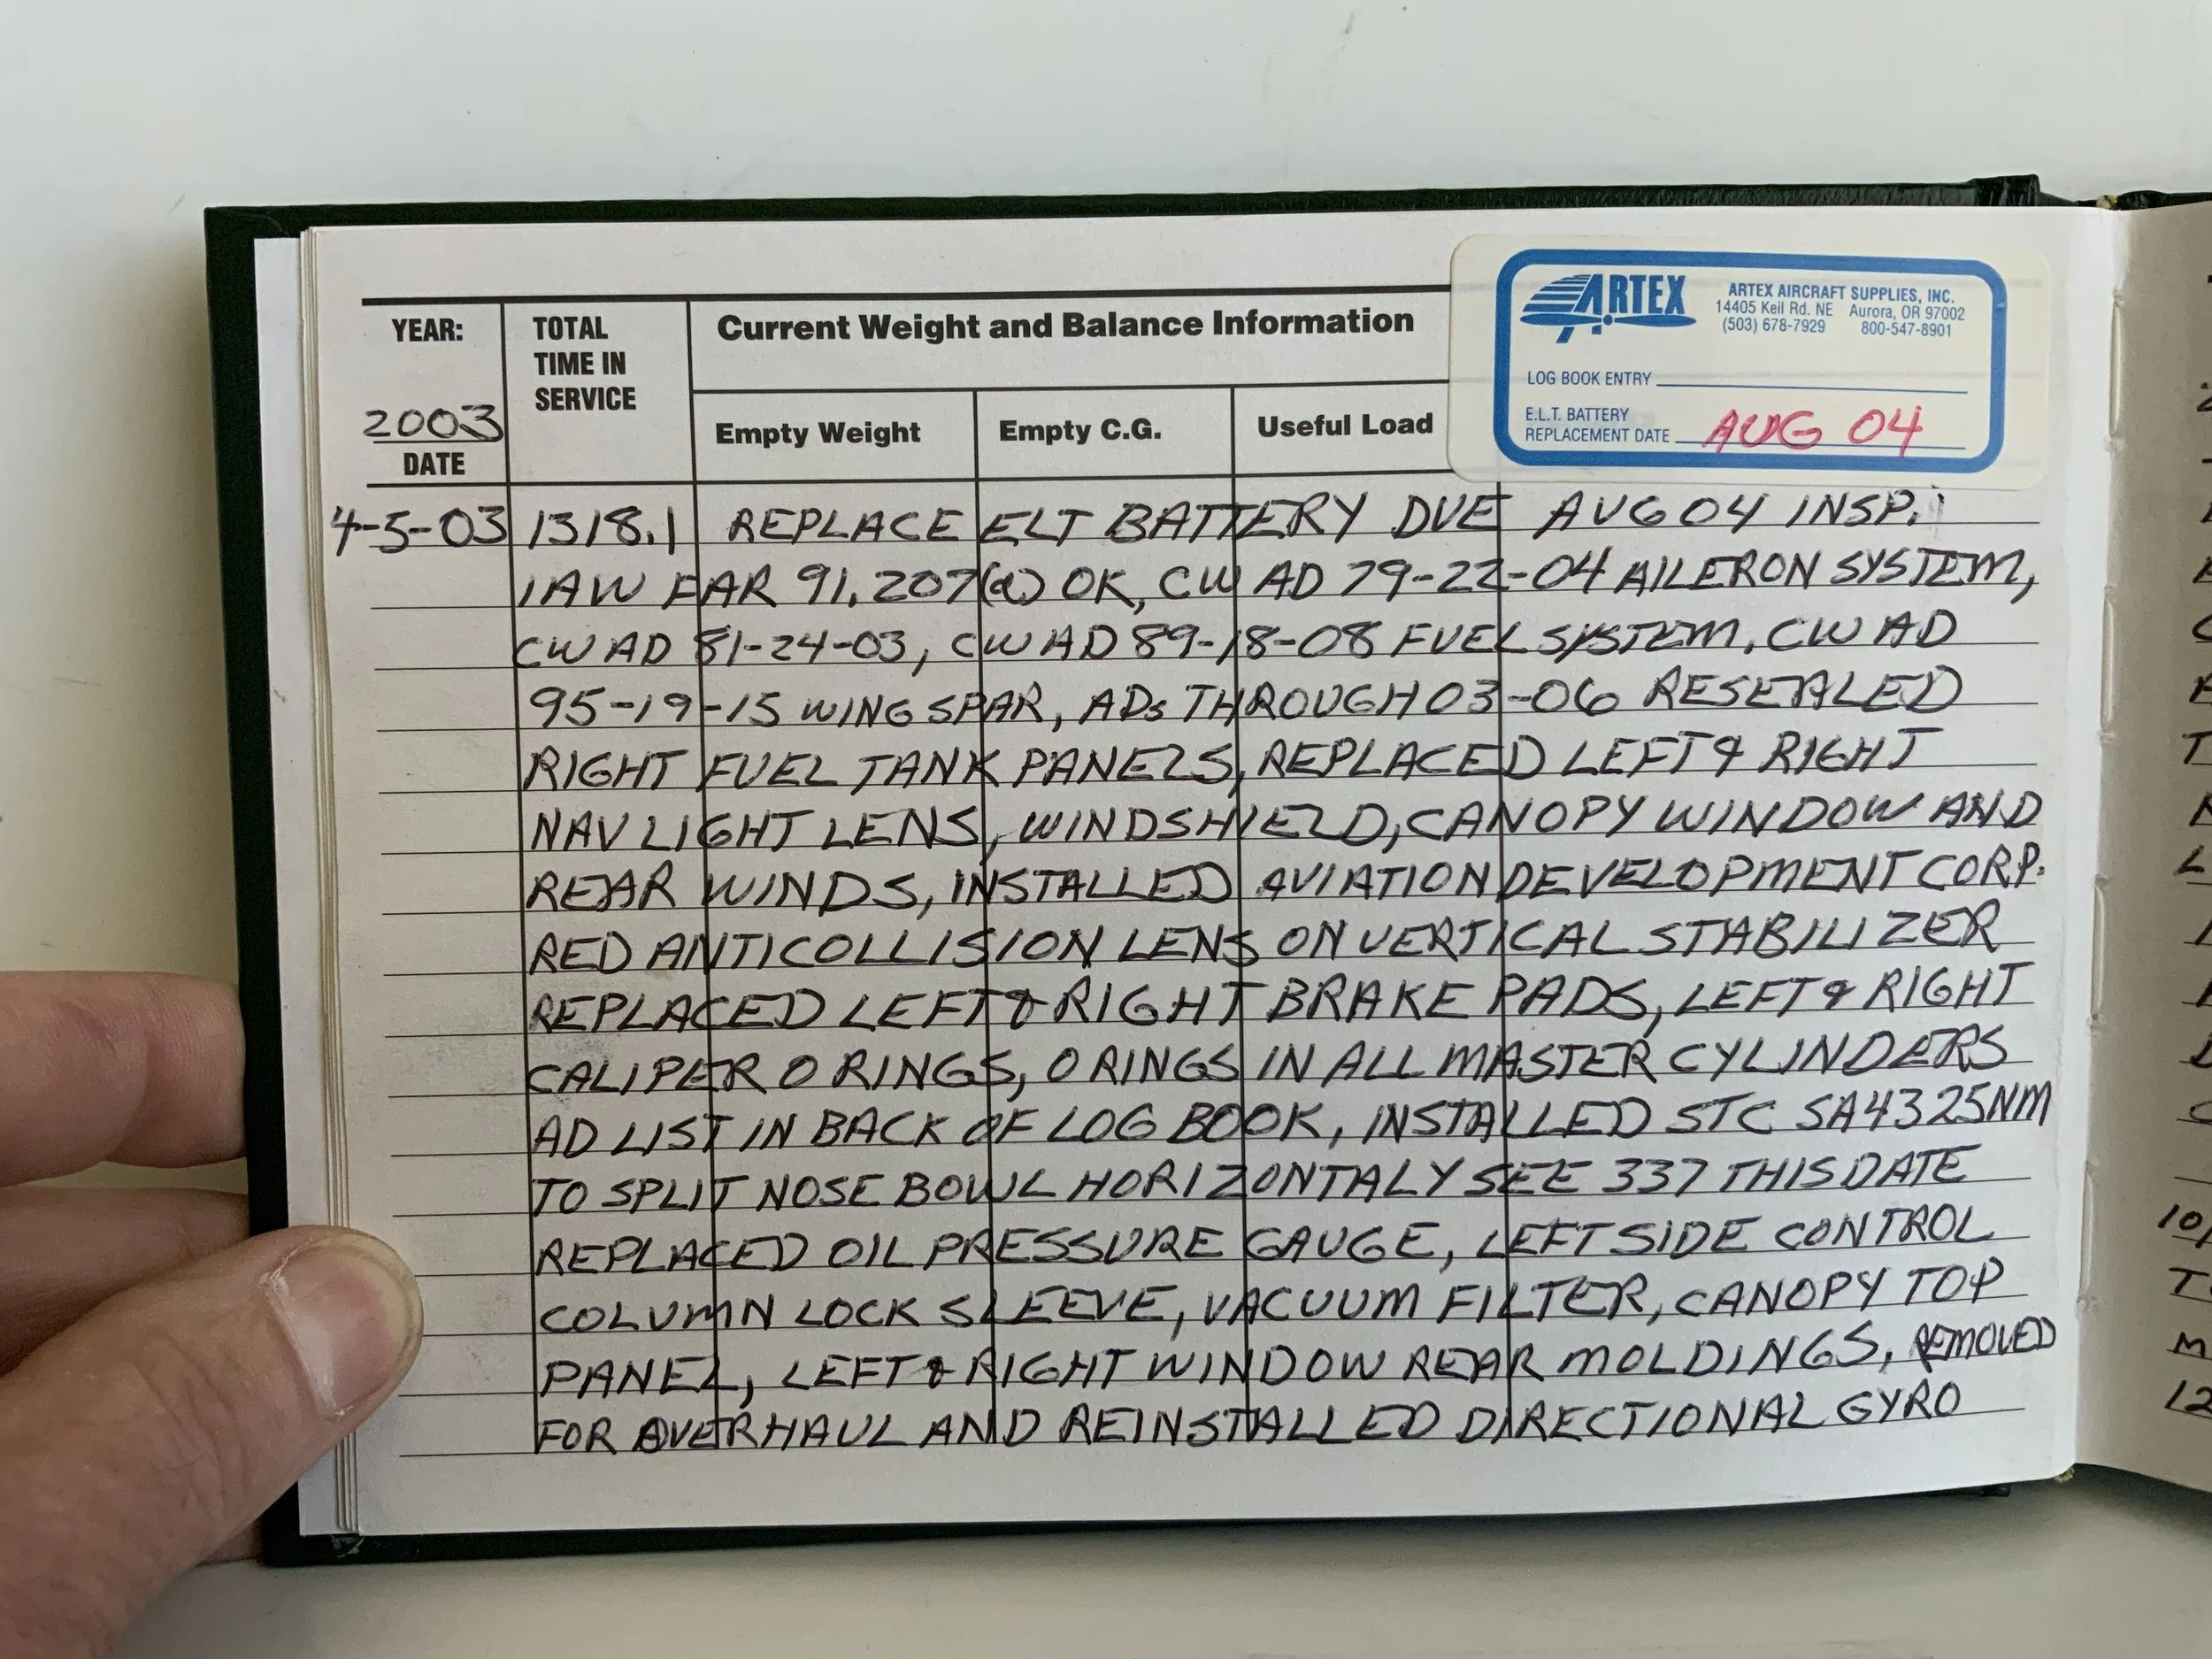 YEAR:
2003
DATE
TOTAL
TIME IN
SERVICE
Current Weight and Balance Information
Empty Weight
Empty C.G.
Useful Load
ARTEX
ARTEX AIRCRAFT SUPPLIES, INC.
14405 Keil Rd. NE Aurora, OR 97002
(503) 678-7929 800-547-8901
LOG BOOK ENTRY
E.L.T. BATTERY
REPLACEMENT DATE AUG 04
4-5-03 1318.1 REPLACE ELT BATTERY DUE AUG 04 INSP.
IAW FAR 91.207(d) OK, CW AD 79-22-04 AILERON SYSTEM,
CW AD 81-24-03, CW AD 89-18-08 FUEL SYSTEM, CW AD
95-19-15 WING SPAR, ADs THROUGH 03-06 RESEALED
RIGHT FUEL TANK PANELS, REPLACED LEFT & RIGHT
NAV LIGHT LENS, WINDSHIELD, CANOPY WINDOW AND
REAR WINDS, INSTALLED AVIATION DEVELOPMENT CORP.
RED ANTICOLLISION LENS ON VERTICAL STABILIZER
REPLACED LEFT & RIGHT BRAKE PADS, LEFT & RIGHT
CALIPER O RINGS, O RINGS IN ALL MASTER CYLINDERS
AD LIST IN BACK OF LOG BOOK, INSTALLED STC SA4325NM
TO SPLIT NOSE BOWL HORIZONTALY SEE 337 THIS DATE
REPLACED OIL PRESSURE GAUGE, LEFT SIDE CONTROL
COLUMN LOCK SLEEVE, VACUUM FILTER, CANOPY TOP
PANEL, LEFT & RIGHT WINDOW REAR MOLDINGS, REMOVED
FOR OVERHAUL AND REINSTALLED DIRECTIONAL GYRO